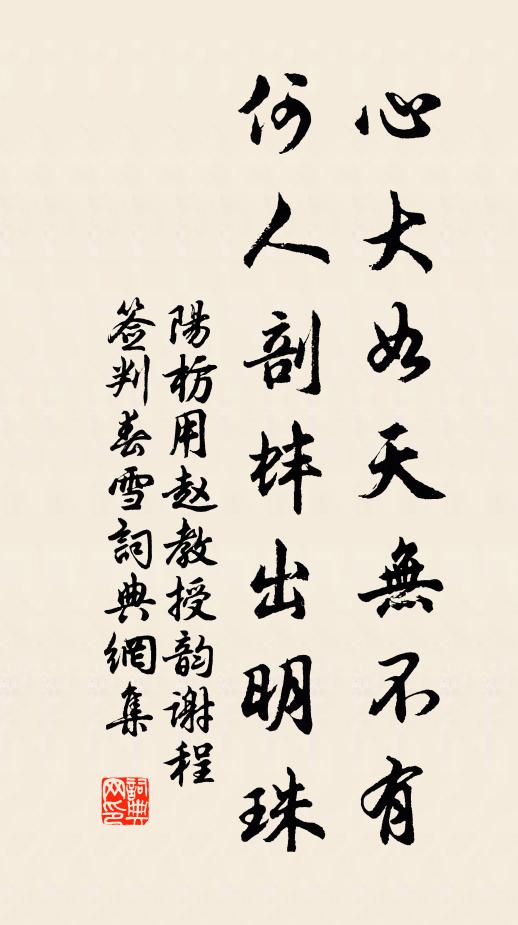 心大如天無不有
何人剖蚌出明珠
陽枋用赵教授韵謝程
签判春雪詞典網集
詞典
网印